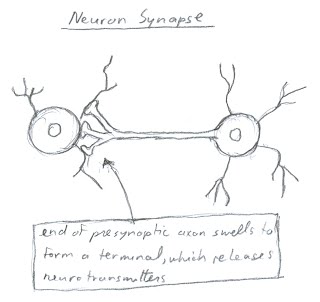 Neuron Synapse
end of presynaptic axon swells to
form a terminal, which releases
neurotransmitters